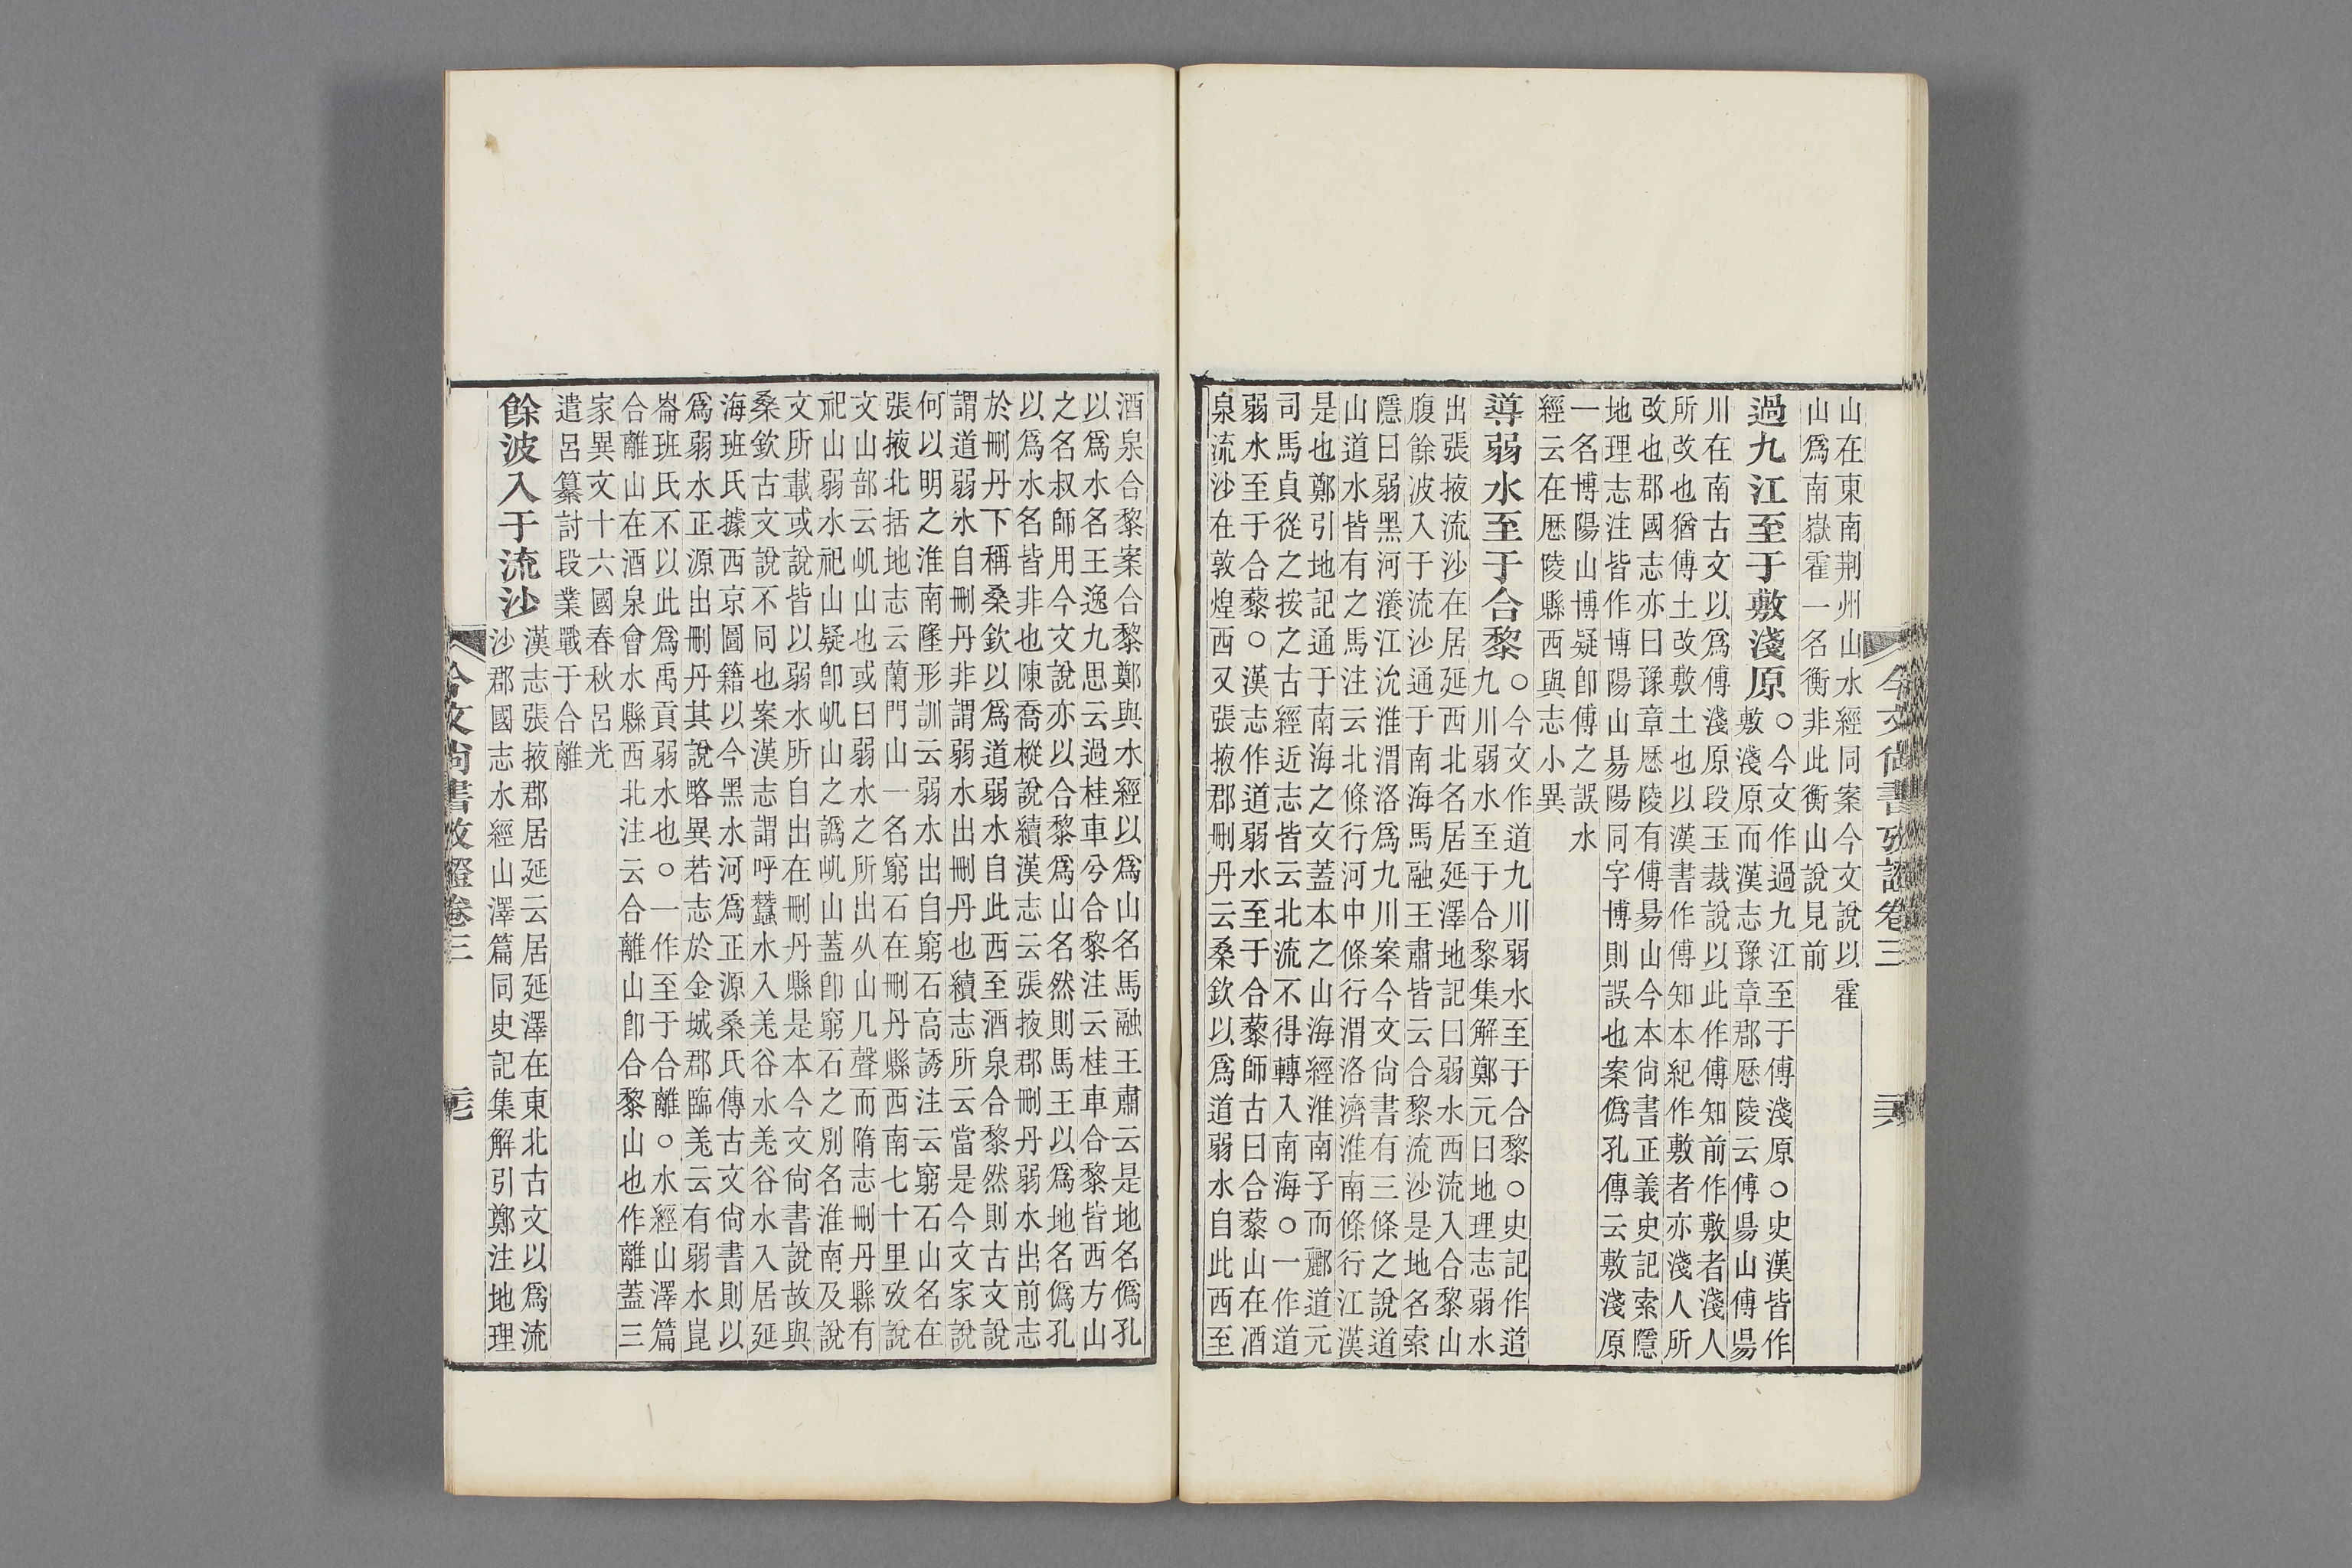 今文尚書攷證卷三
三六
山在東南荆州山水經同案今文說以霍
山爲南嶽霍一名衡非此衡山說見前
過九江至于敷淺原
○今文作過九江至于傅淺原○史漢皆作
敷淺原而漢志豫章郡歷陵云傅昜山傅昜
川在南古文以爲傅淺原段玉裁說以此作傅知前作敷者淺人
所改也猶傅土改敷土也以漢書作傅知本紀作敷者亦淺人所
改也郡國志亦曰豫章歷陵有傅昜山今本尙書正義史記索隱
地理志注皆作博陽山昜陽同字博則誤也案僞孔傳云敷淺原
一名博陽山博疑卽傅之誤水
經云在歷陵縣西與志小異
導弱水至于合黎
○今文作道九川弱水至于合黎○史記作道
九川弱水至于合黎集解鄭元曰地理志弱水
出張掖流沙在居延西北名居延澤地記曰弱水西流入合黎山
腹餘波入于流沙通于南海馬融王肅皆云合黎流沙是地名索
隱曰弱黑河瀁江沇淮渭洛爲九川案今文尙書有三條之說道
山道水皆有之馬注云北條行河中條行渭洛濟淮南條行江漢
是也鄭引地記通于南海之文蓋本之山海經淮南子而酈道元
司馬貞從之按之古經近志皆云北流不得轉入南海○一作道
弱水至于合藜○漢志作道弱水至于合藜師古曰合藜山在酒
泉流沙在敦煌西又張掖郡刪丹云桑欽以爲道弱水自此西至
酒泉合黎案合黎鄭與水經以爲山名馬融王肅云是地名僞孔
以爲水名王逸九思云過桂車兮合黎注云桂車合黎皆西方山
之名叔師用今文說亦以合黎爲山名然則馬王以爲地名僞孔
以爲水名皆非也陳喬樅說續漢志云張掖郡刪丹弱水出前志
於刪丹下稱桑欽以爲道弱水自此西至酒泉合黎然則古文說
謂道弱水自刪丹非謂弱水出刪丹也續志所云當是今文家說
何以明之淮南隆形訓云弱水出自窮石高誘注云窮石山名在
張掖北括地志云蘭門山一名窮石在刪丹縣西南七十里攷說
文山部云屼山也或曰弱水之所出从山几聲而隋志刪丹縣有
祀山弱水祀山疑卽屼山之譌屼山蓋卽窮石之別名淮南及說
文所載或說皆以弱水所自出在刪丹縣是本今文尙書說故與
桑欽古文說不同也案漢志謂呼蠶水入羌谷水羌谷水入居延
海班氏據西京圖籍以今黑水河爲正源桑氏傳古文尙書則以
爲弱水正源出刪丹其說略異若志於金城郡臨羌云有弱水崑
崙班氏不以此爲禹貢弱水也○一作至于合離○水經山澤篇
合離山在酒泉會水縣西北注云合離山卽合黎山也作離蓋三
家異文十六國春秋呂光
遣呂纂討段業戰于合離
餘波入于流沙
漢志張掖郡居延云居延澤在東北古文以爲流
沙郡國志水經山澤篇同史記集解引鄭注地理
今文尚書攷證卷三
三七